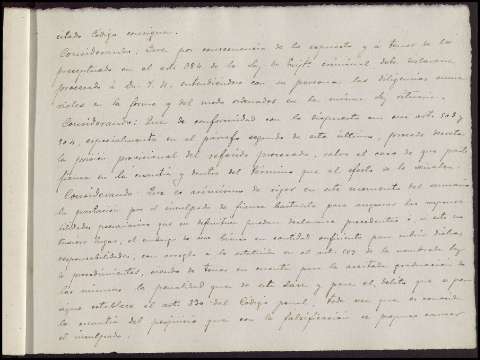 citado Código consigna.
Considerando: Que por consecuencia de lo expuesto y á tenor de lo
preceptuado en el art. 384 de la Ley de Enjt.º criminal debe declararse
procesado á Dn. T. N. entendiéndose con su persona las diligencias suma-
riales en la forma y del modo ordenados en la misma ley rituaria.
Considerando: Que de conformidad con lo dispuesto en sus arts. 503 y
504, especialmente en el párrafo segundo de este último, procede decretar
la prisión provisional del referido procesado, salvo el caso de que preste
fianza en la cuantía y dentro del término que al efecto se le señalen.
Considerando: Que es asimismo de rigor en este momento del sumario
la prestación por el inculpado de fianza bastante para asegurar las respon-
sabilidades pecuniarias que en definitiva puedan declararse procedentes ó, si esto no
tuviere lugar, el embargo de sus bienes en cantidad suficiente para cubrir dichas
responsabilidades, con arreglo á lo establecido en el art. 589 de la nombrada ley
de procedimientos, siendo de tener en cuenta para la acertada graduación de
las mismas la penalidad que de este clase y para el delito que se per-
sigue establece el art. 330 del Código penal, toda vez que es conocida
la cuantía del perjuicio que con la falsificación se propuso causar
el inculpado.